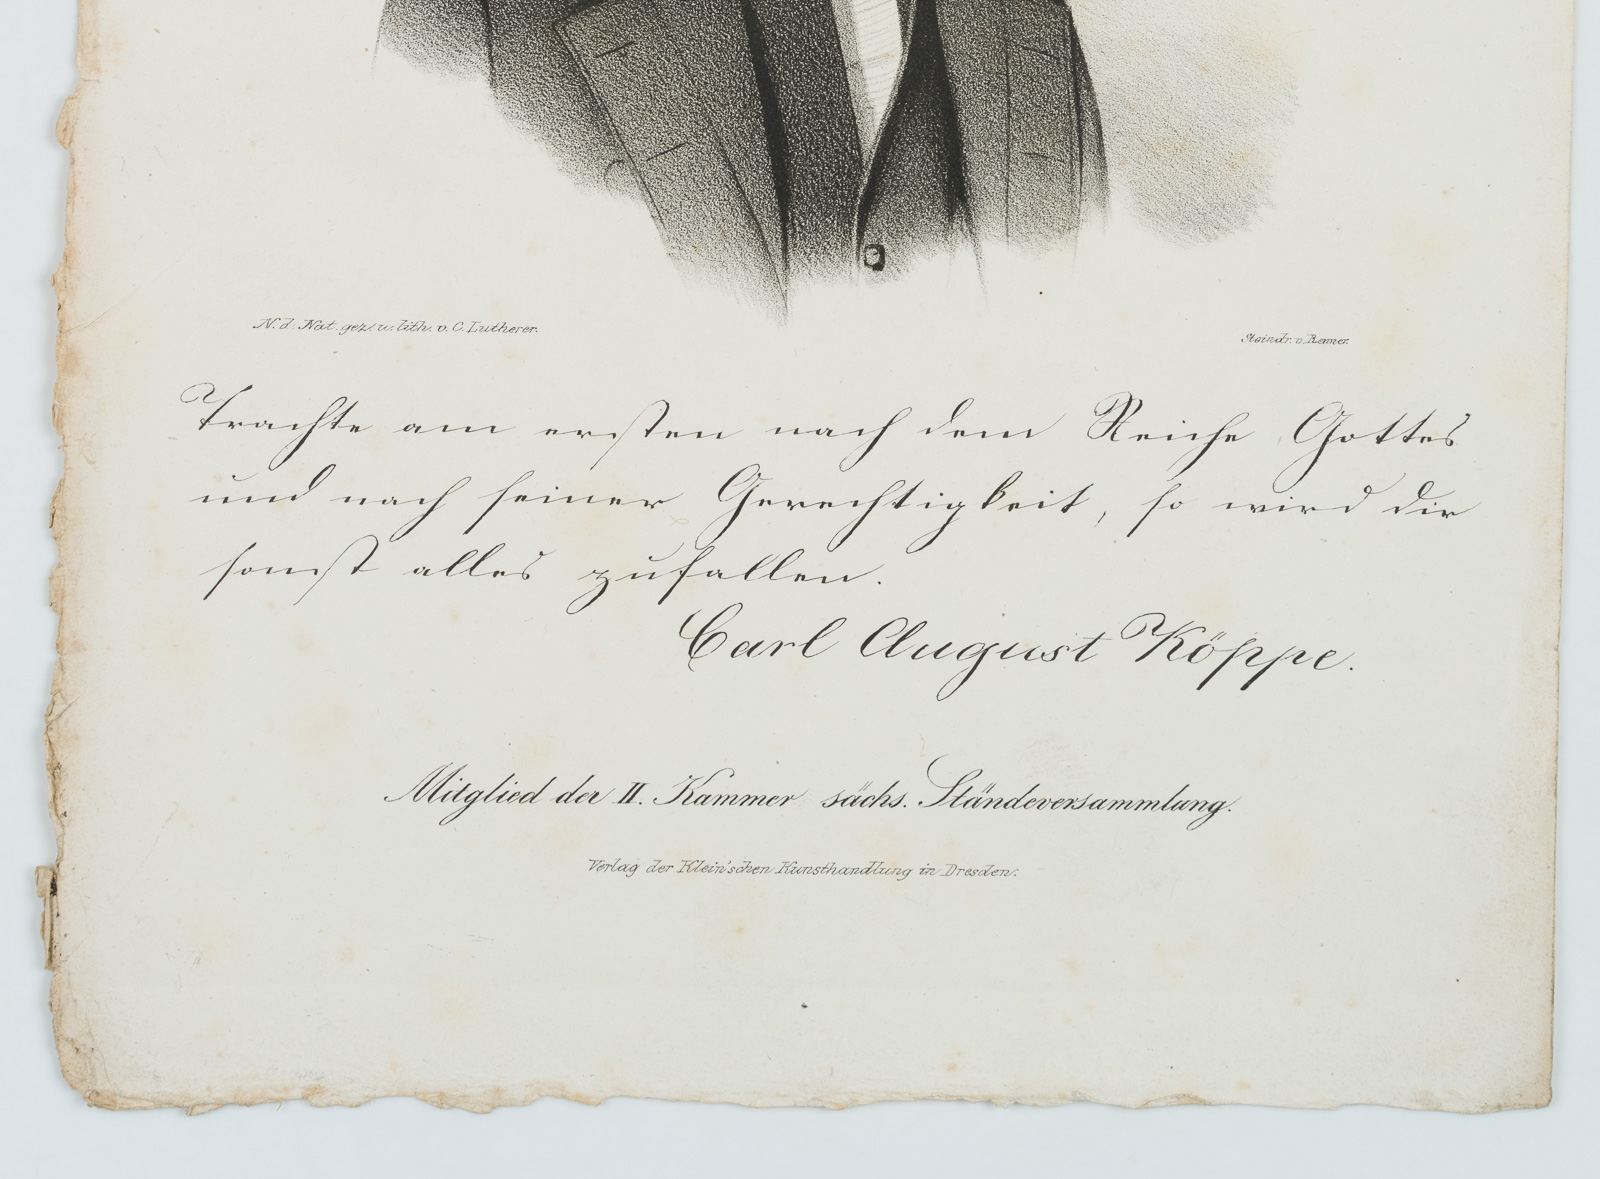 N. d. Nat. gez. u. lith. v. C. Lutherer.
Steindr. v. Renner.
Trachte am ersten nach dem Reiche Gottes
und nach seiner Gerechtigkeit, so wird dir
sonst alles zufallen.
Carl August Köppe.
Mitglied der II. Kammer sächs. Ständeversammlung.
Verlag der Klein'schen Kunsthandlung in Dresden.